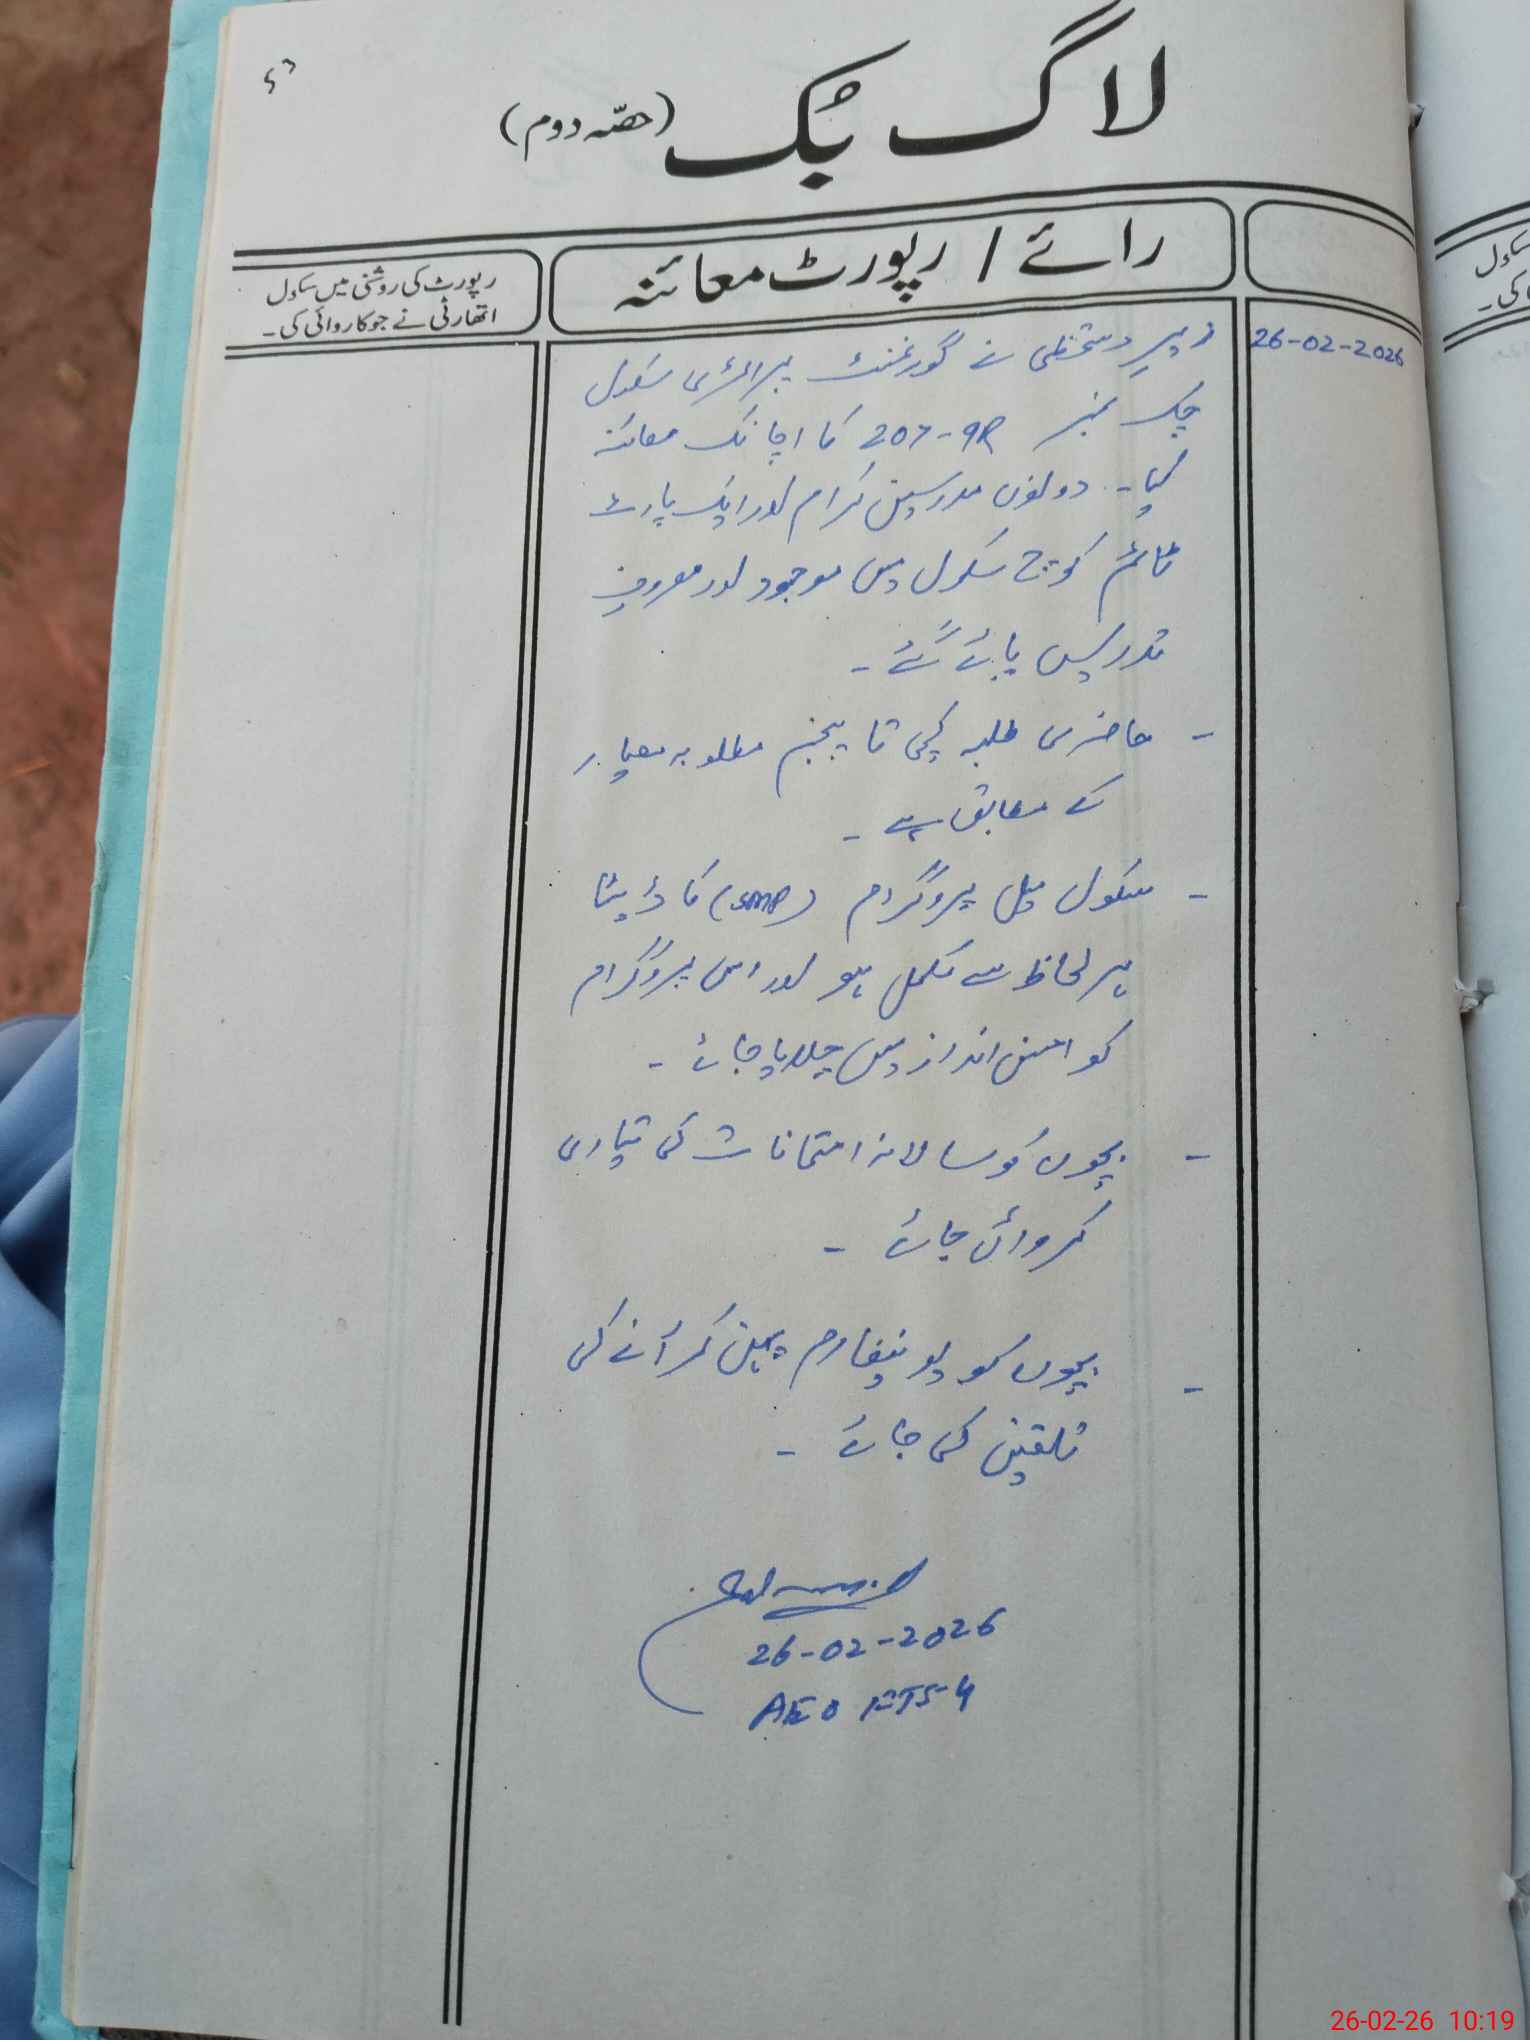 ۵۶
لاگ بُک (حصّہ دوم)
رائے / رپورٹ معائنہ
رپورٹ کی روشنی میں سکول
اتھارٹی نے جو کاروائی کی۔
26-02-2026
زیرِ دستخطی نے گورنمنٹ پرائمری سکول
چک نمبر 207-9R کا اچانک معائنہ
کیا۔ دونوں مدرسین کرام اور ایک پارٹ
ٹائم کوچ سکول میں موجود اور مصروفِ
تدریس پائے گئے۔
- حاضری طلبہ کچی تا پنجم مطلوبہ معیار
کے مطابق ہے۔
- سکول میل پروگرام (SMP) کا ڈیٹا
ہر لحاظ سے مکمل ہو اور اس پروگرام
کو احسن انداز میں چلایا جائے۔
- بچوں کو سالانہ امتحانات کی تیاری
کروائی جائے۔
- بچوں کو یونیفارم پہن کر آنے کی
تلقین کی جائے۔
26-02-2026
AEO
سکول
کی۔
26-02-26 10:19